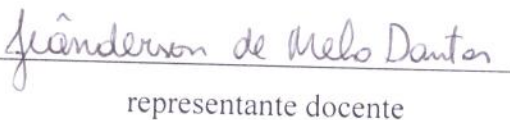 Jeânderson de Melo Dantas
representante docente